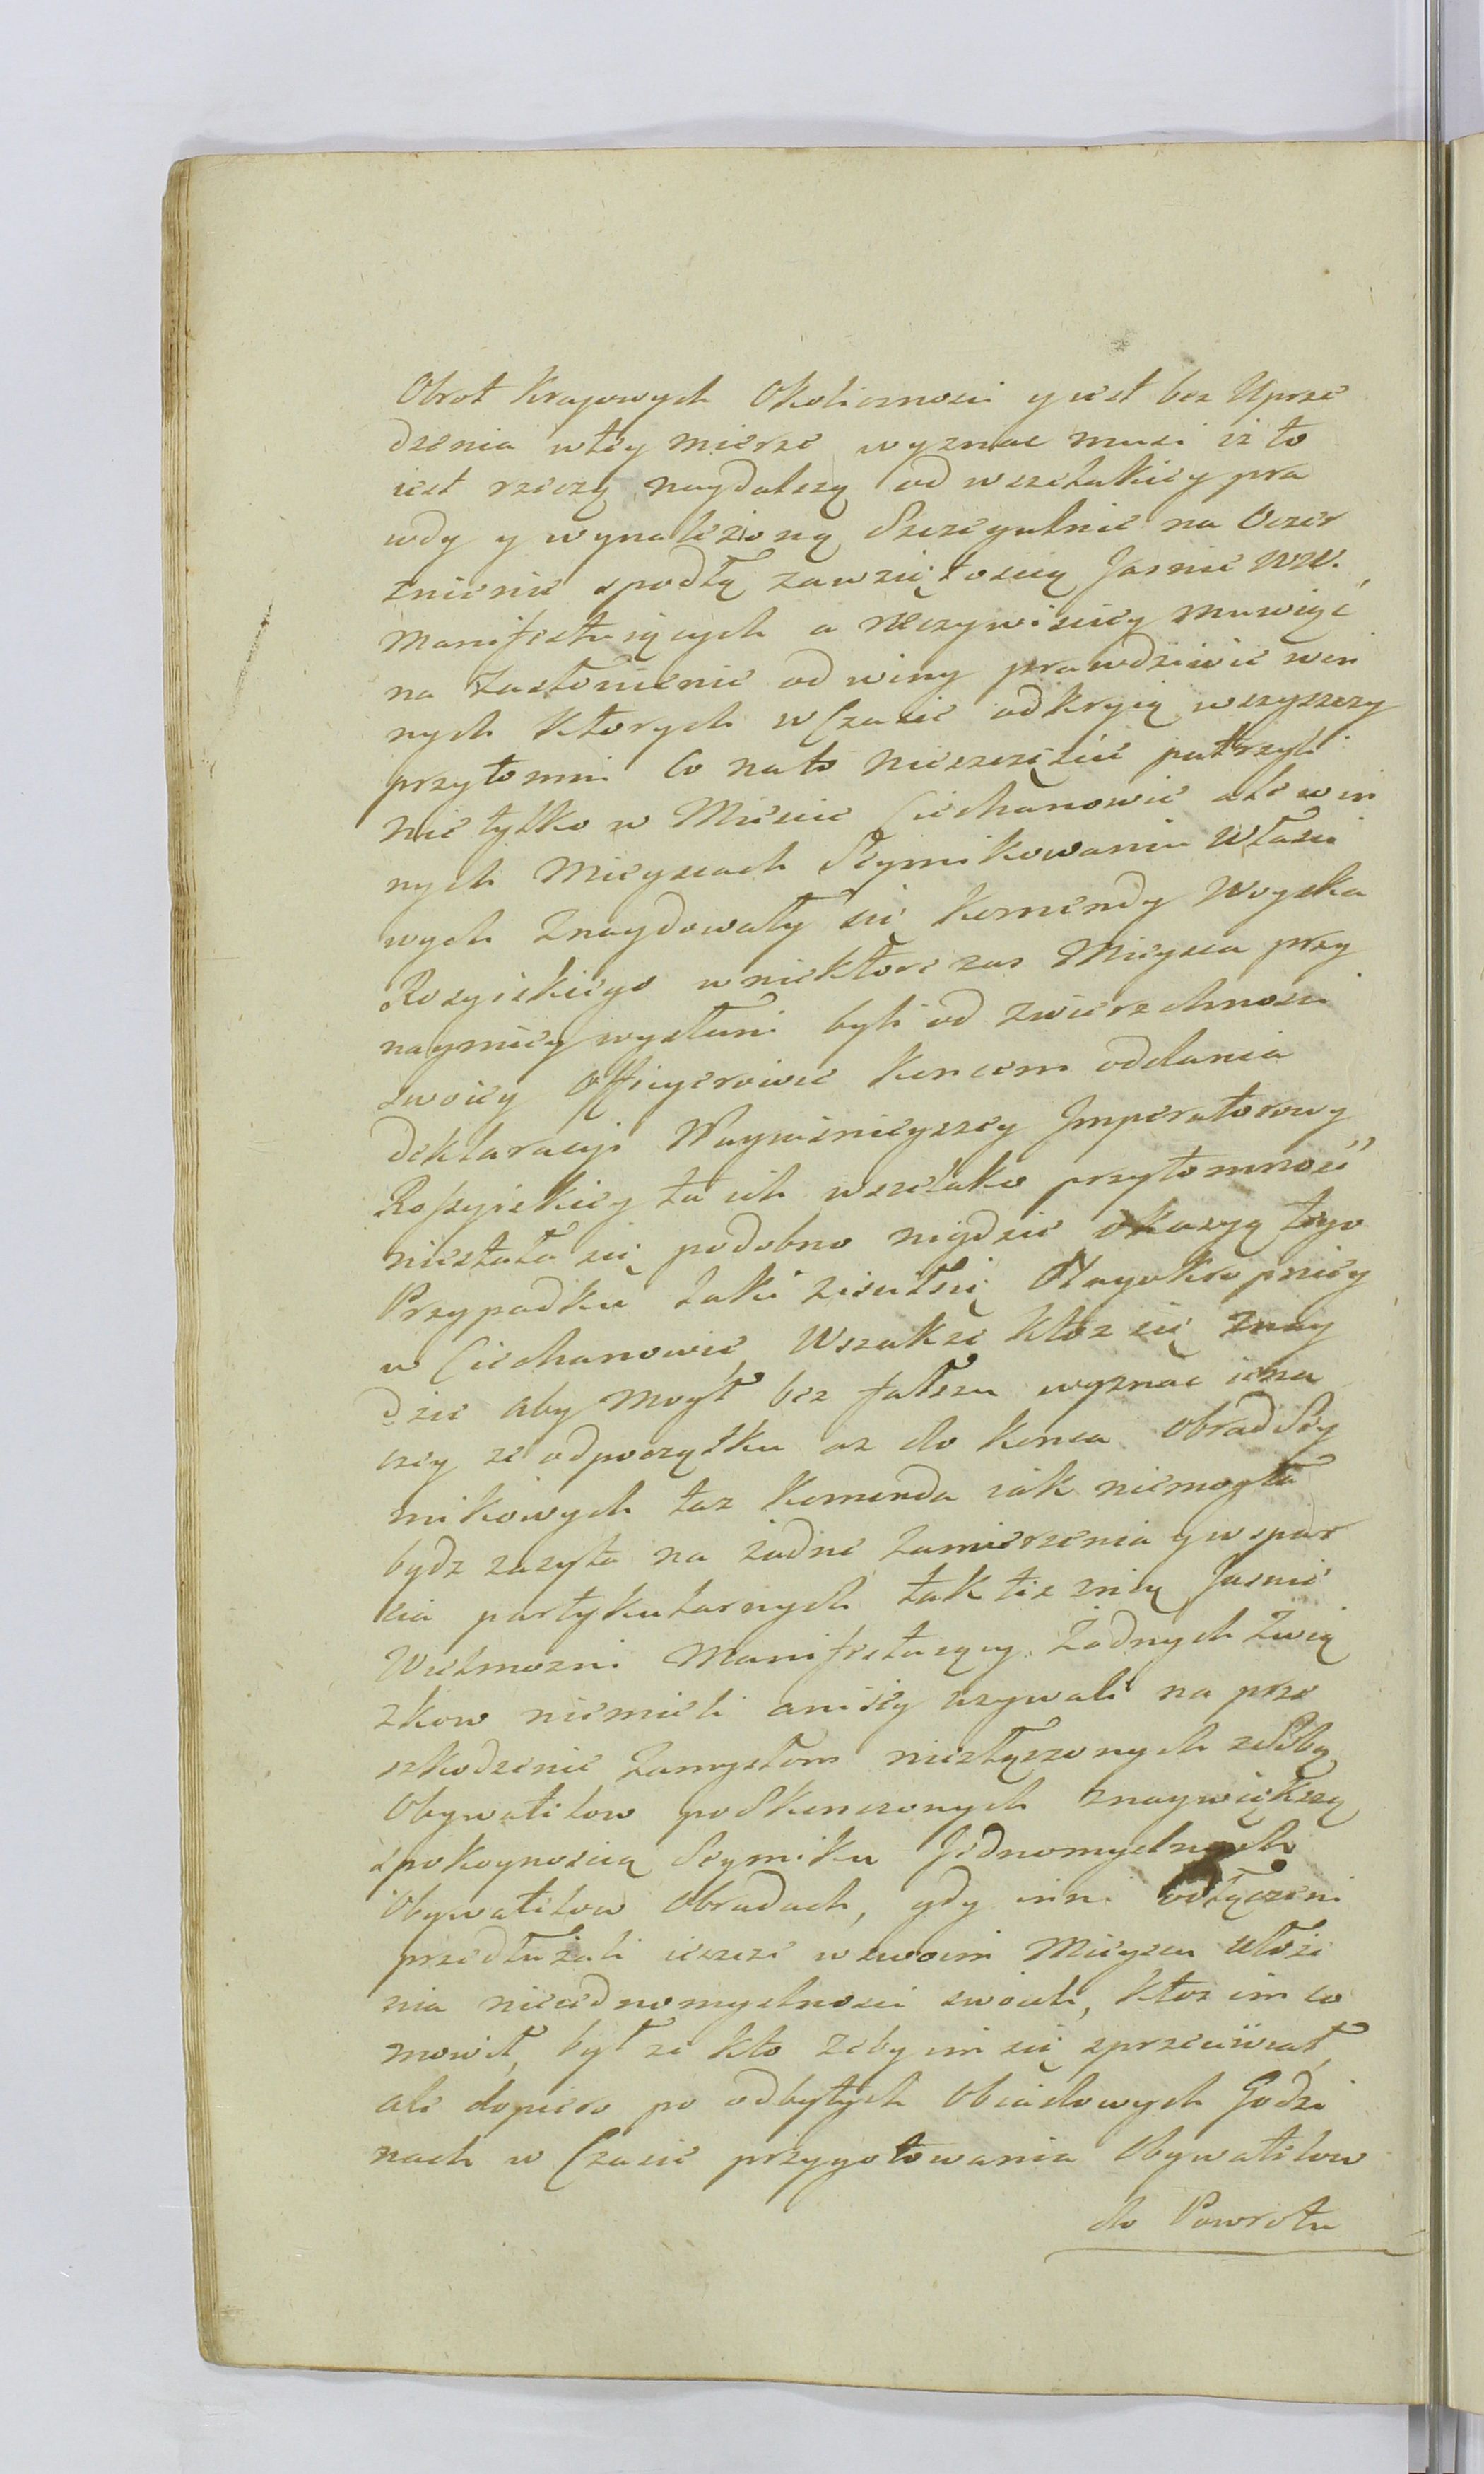 Obrot Krajowych Okolicznosci y iest bez Uprze
dzenia wtey mierze wyznac musi iz to
iest rzeczą naydalszą od wszelakiey pra
wdy y wynalezioną Szczegulnie na Oczer
nienie spodłą zawziętoscią Jasnie WW.
Manifestuiących a rzeczywisciey muwiąc
na Zasłonienie od winy prawdziwie win
nych ktorych w Czasie odkryią wszyszczy
przytomni Co nato nieszczęscie patrzyli
nie tylko w Miescie Ciechanowie ale w in
nych Mieyscach Seymikowaniu Własci
wych Znaydowały się Komendy Woyska
Rosyiskiego w niektore zas Mieysca przy
naymniey wysłani byli od zwierzchnosci
swoiey Officyerowie koncem oddania
deklaracyi Nayiasnieyszey Imperatorowy
Rossyiskiey ta ich wszelako przytomność
niestała się podobno nigdzie okazyą tego
Przypadku iaki ziscił się Nayokropniey
w Ciechanowie Wszakze ktoz się znay
dzie aby mogł bez fałszu wyznac inna
czey ze odpoczątku az do konca obrad Sey
mikowych taz komenda iak niemogła
bydz zazyta na żadne zamierzenia y wspar
cia partykularnych tak też z nią Jasnie
Wielmozni Manifestuiący żadnych Zwią
zkow niemieli ani iey uzywali na prze
szkodzenie Zamysłom niezłączonych zsobą
Obywatelow poskonczonych z naywiększą
spokoynoscią Seymiku Jednomyslnych
Obywatelow Obradach, gdy inni odłączeni
przedłużali ieszcze w swoim Mieyscu ułoże
nia nieiednomyslnosci swoich, ktoz im co
mowił, był ze kto zeby im się sprzeciwiał,
ale dopiero po odbytych Obiadowych Godzi
nach w Czasie przygotowania Obywatelow
do Powrotu